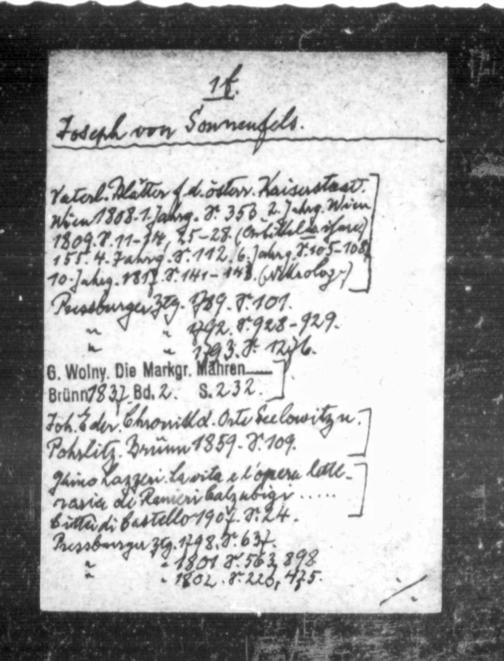 1f.
Joseph von Sonnenfels.
Vaterl. Blätter f. d. österr. Kaiserstaat.
Wien 1808. 1. Jahrg. S. 353. 2. Jahrg. Wien
1809. S. 11-14, 25-28.
155. 4. Jahrg. S. 112. 6. Jahrg. S. 105-108
10. Jahrg. 1817. S. 141-143. (Nekrolog.)
Pressburger Ztg. 1789. S. 101.
" " 1792. S. 928-929.
" " 1793. S. 1276.
G. Wolny. Die Markgr. Mähren
Brünn 1837. Bd. 2. S. 232.
Joh. Eder. Chronik d. Orte Seelowitz u.
Pohrlitz. Brünn 1859. S. 109.
Ghino Lazzeri. La vita e l'opera lette-
raria di Ranieri Calzabigi .....
Città di Castello 1907. S. 24.
Pressburger Ztg. 1798. S. 637.
" " 1801 S. 563, 898
" " 1802. S. 226, 475.